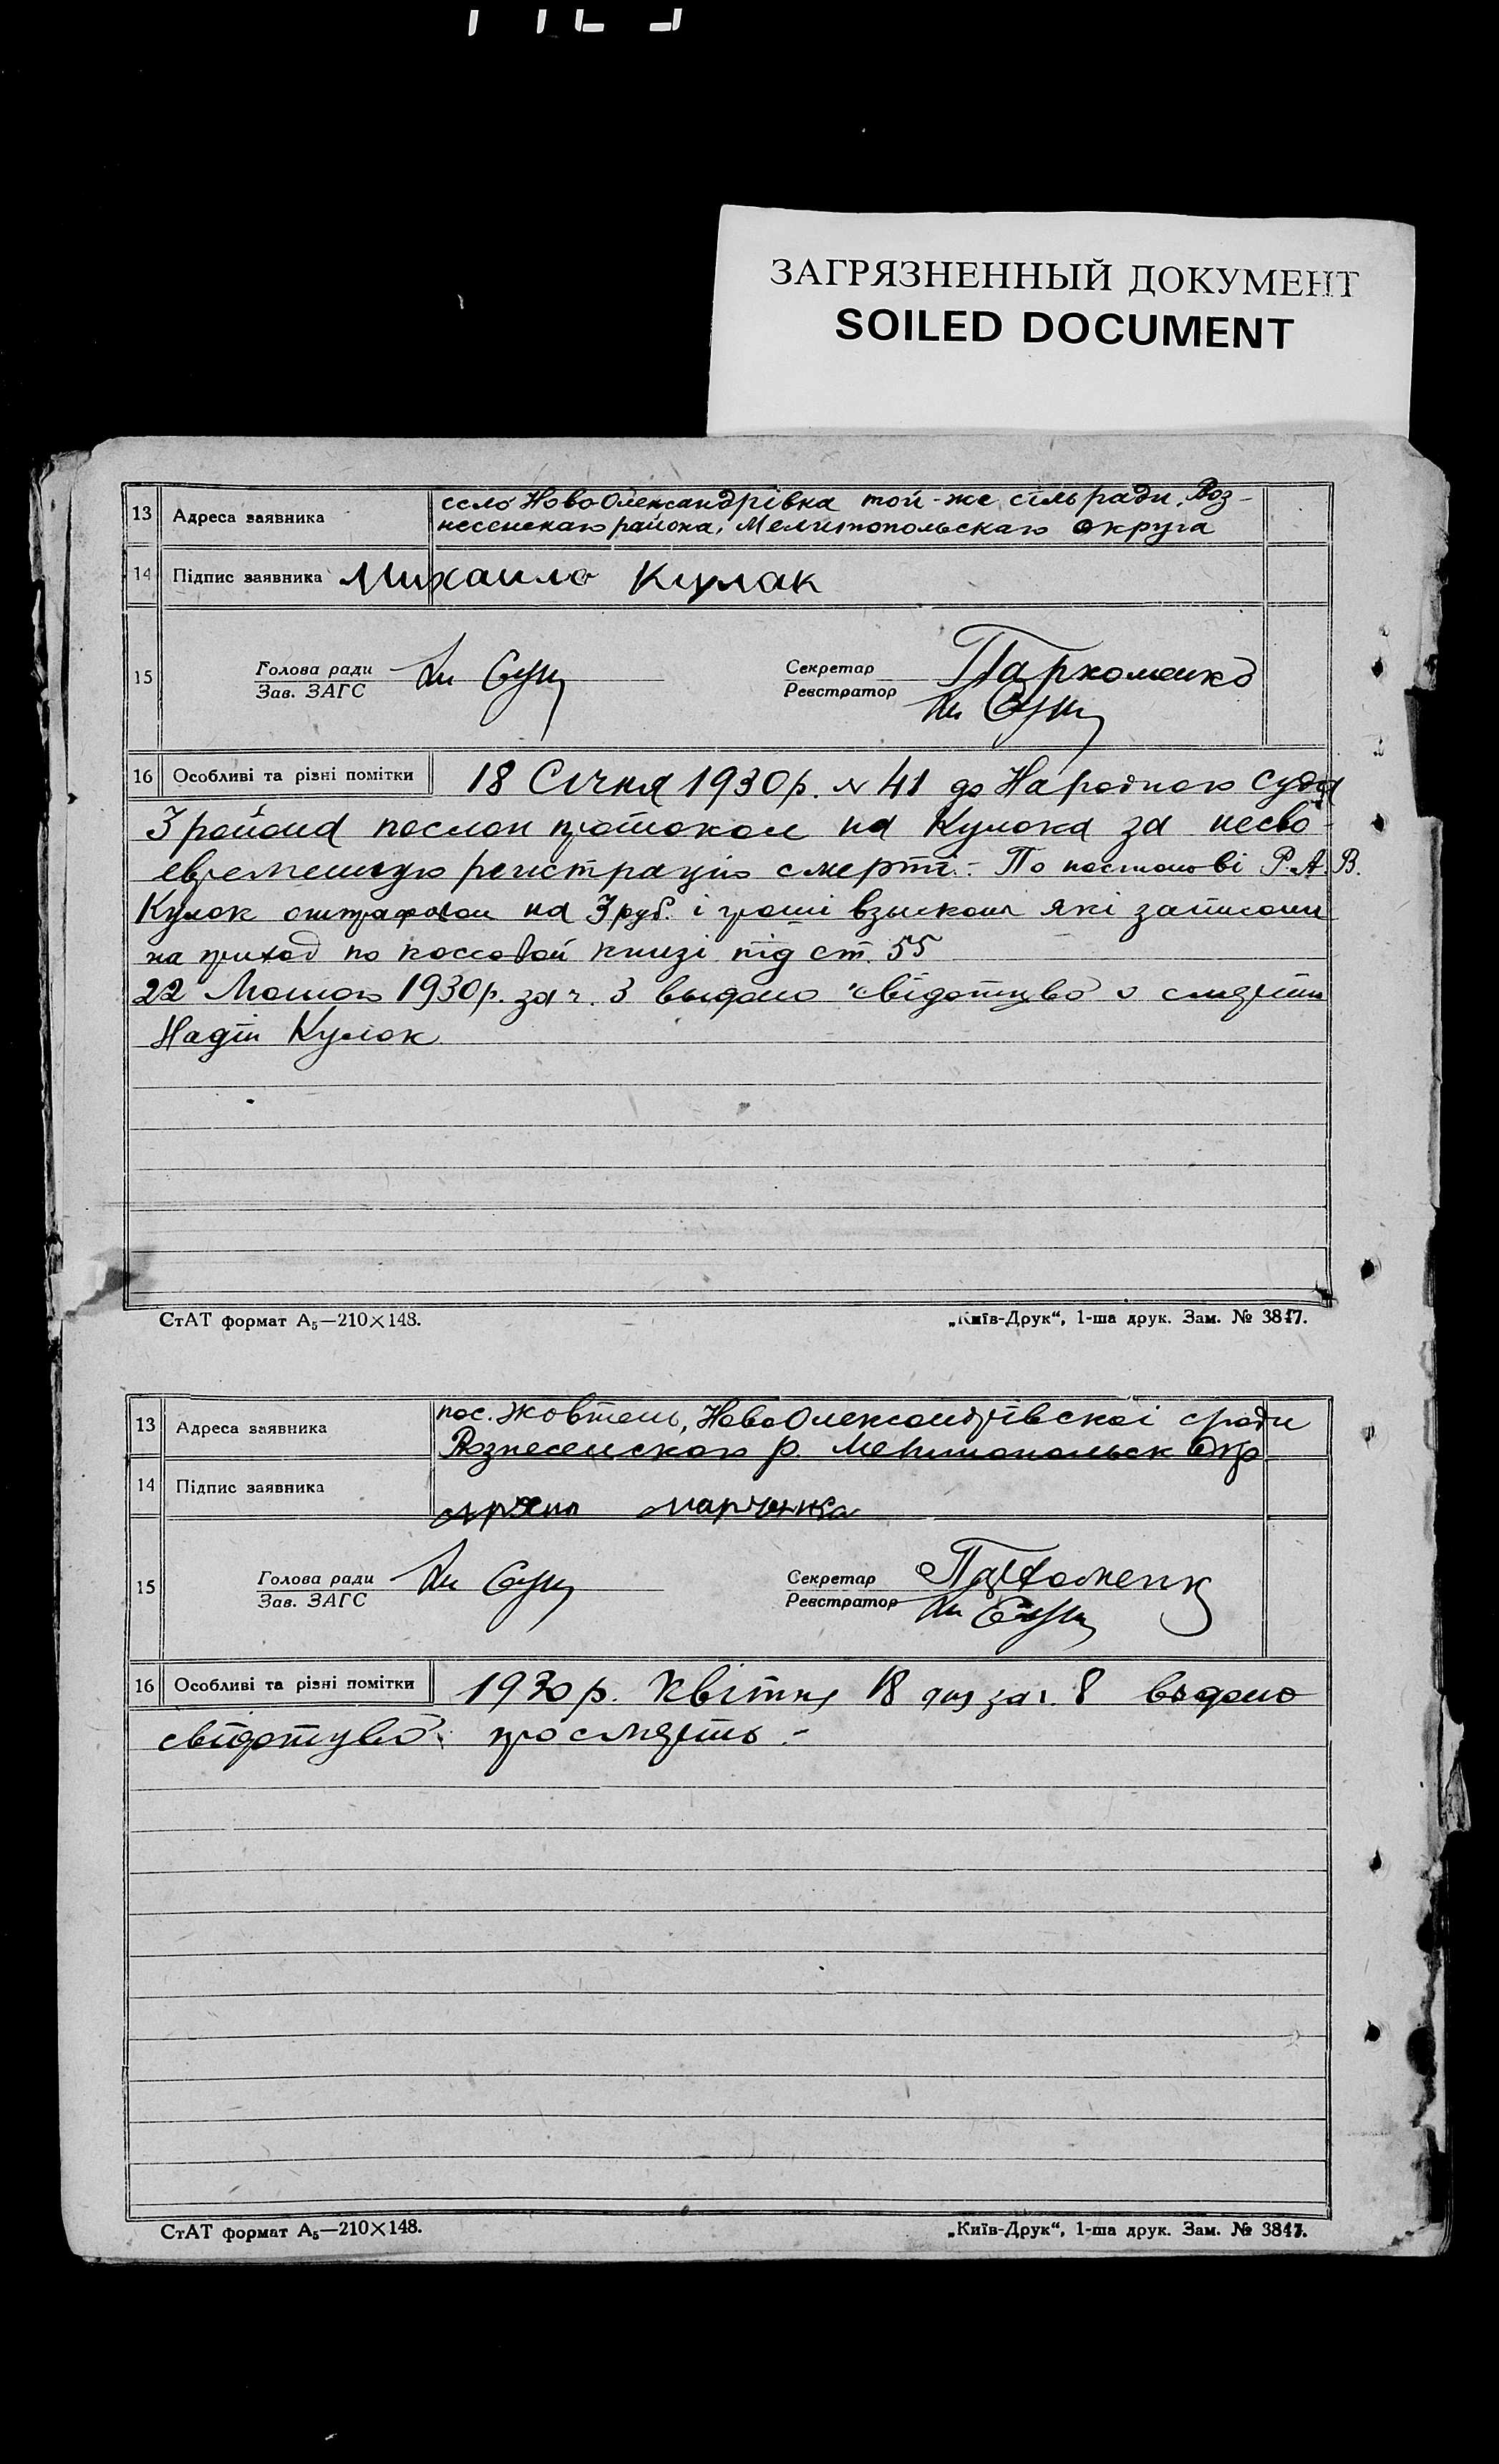 ЗАГРЯЗНЕННЫЙ ДОКУМЕНТ
SOILED DOCUMENT
13 Адреса заявника село НовоОлександрівка той-же сільради. Воз-
несенскаго района, Мелитопольскаго округа
14 Підпис заявника Михаило Кулак
15 Голова ради
Зав. ЗАГС
Секретар Пархоменко
Реєстратор
16 Особливі та різні помітки 18 Січня 1930р. № 41 до Народного Суда
3 района послан протокол на Кулака за несво-
евременную регистрацію смерті. - По постанові Р.А.В.
Кулак оштрафован на 3 руб. і гроші взыскани які записани
на приход по кассовой книзі під ст. 55
22 1930р. за ч. 3 выдано свідотцво о смерти
Надії Кулак
СтАТ формат А₅—210×148.
„Київ-Друк“, 1-ша друк. Зам. № 3847.
13 Адреса заявника пос. Жовтень, НовоОлександрівскоі сради
Вознесенского р. Мелитопольск Окр
14 Підпис заявника Марченка
15 Голова ради
Зав. ЗАГС
Секретар Пархоменк
Реєстратор
16 Особливі та різні помітки 1930р. Квітня 18 дня за ч. 8 выдано
свідотцво про смерть. -
СтАТ формат А₅—210×148.
„Київ-Друк“, 1-ша друк. Зам. № 3847.